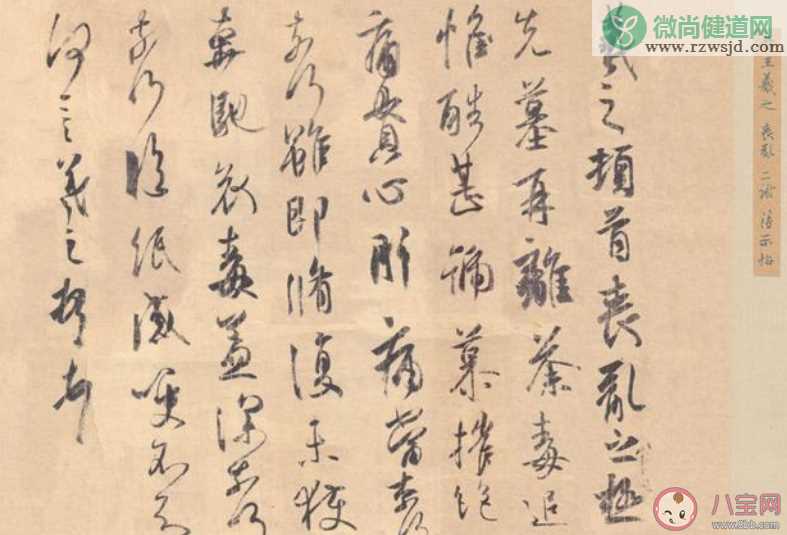 微尚健道网
www.rzwsjd.com
王羲之 喪亂 二謝 得示帖
羲之頓首喪亂之極
先墓再離荼毒追
惟酷甚號慕摧絕
痛貫心肝痛當奈何
奈何雖即脩復未獲
奔馳哀毒益深奈何
奈何臨紙感哽不知
何言羲之頓首
八宝网
www.8bb.com